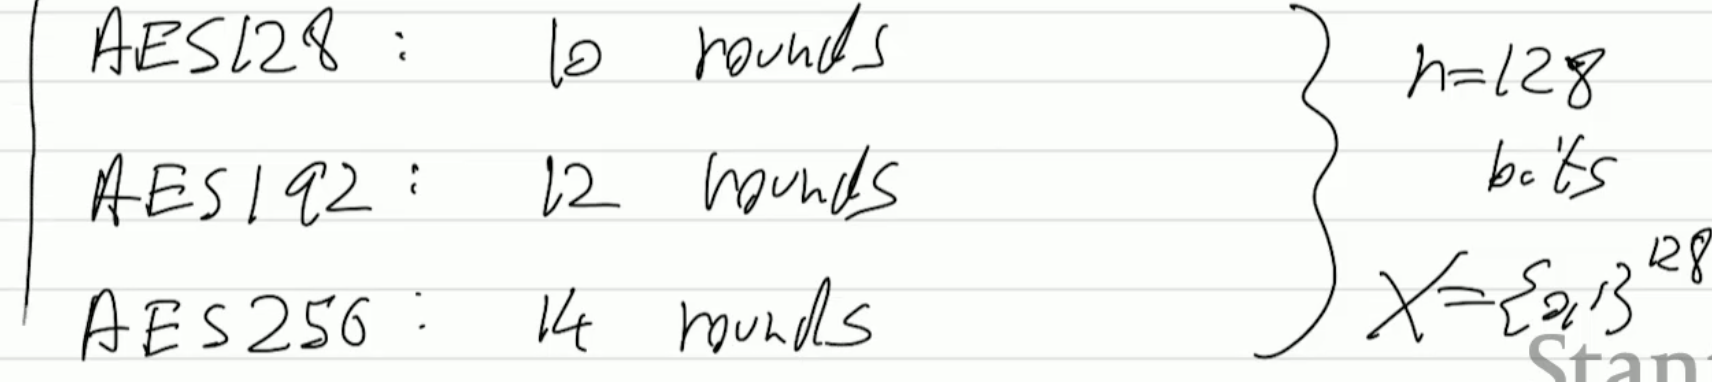 AES128 : 10 rounds
AES192 : 12 rounds
AES256 : 14 rounds
n=128
bits
X={0,1}^128
Stan